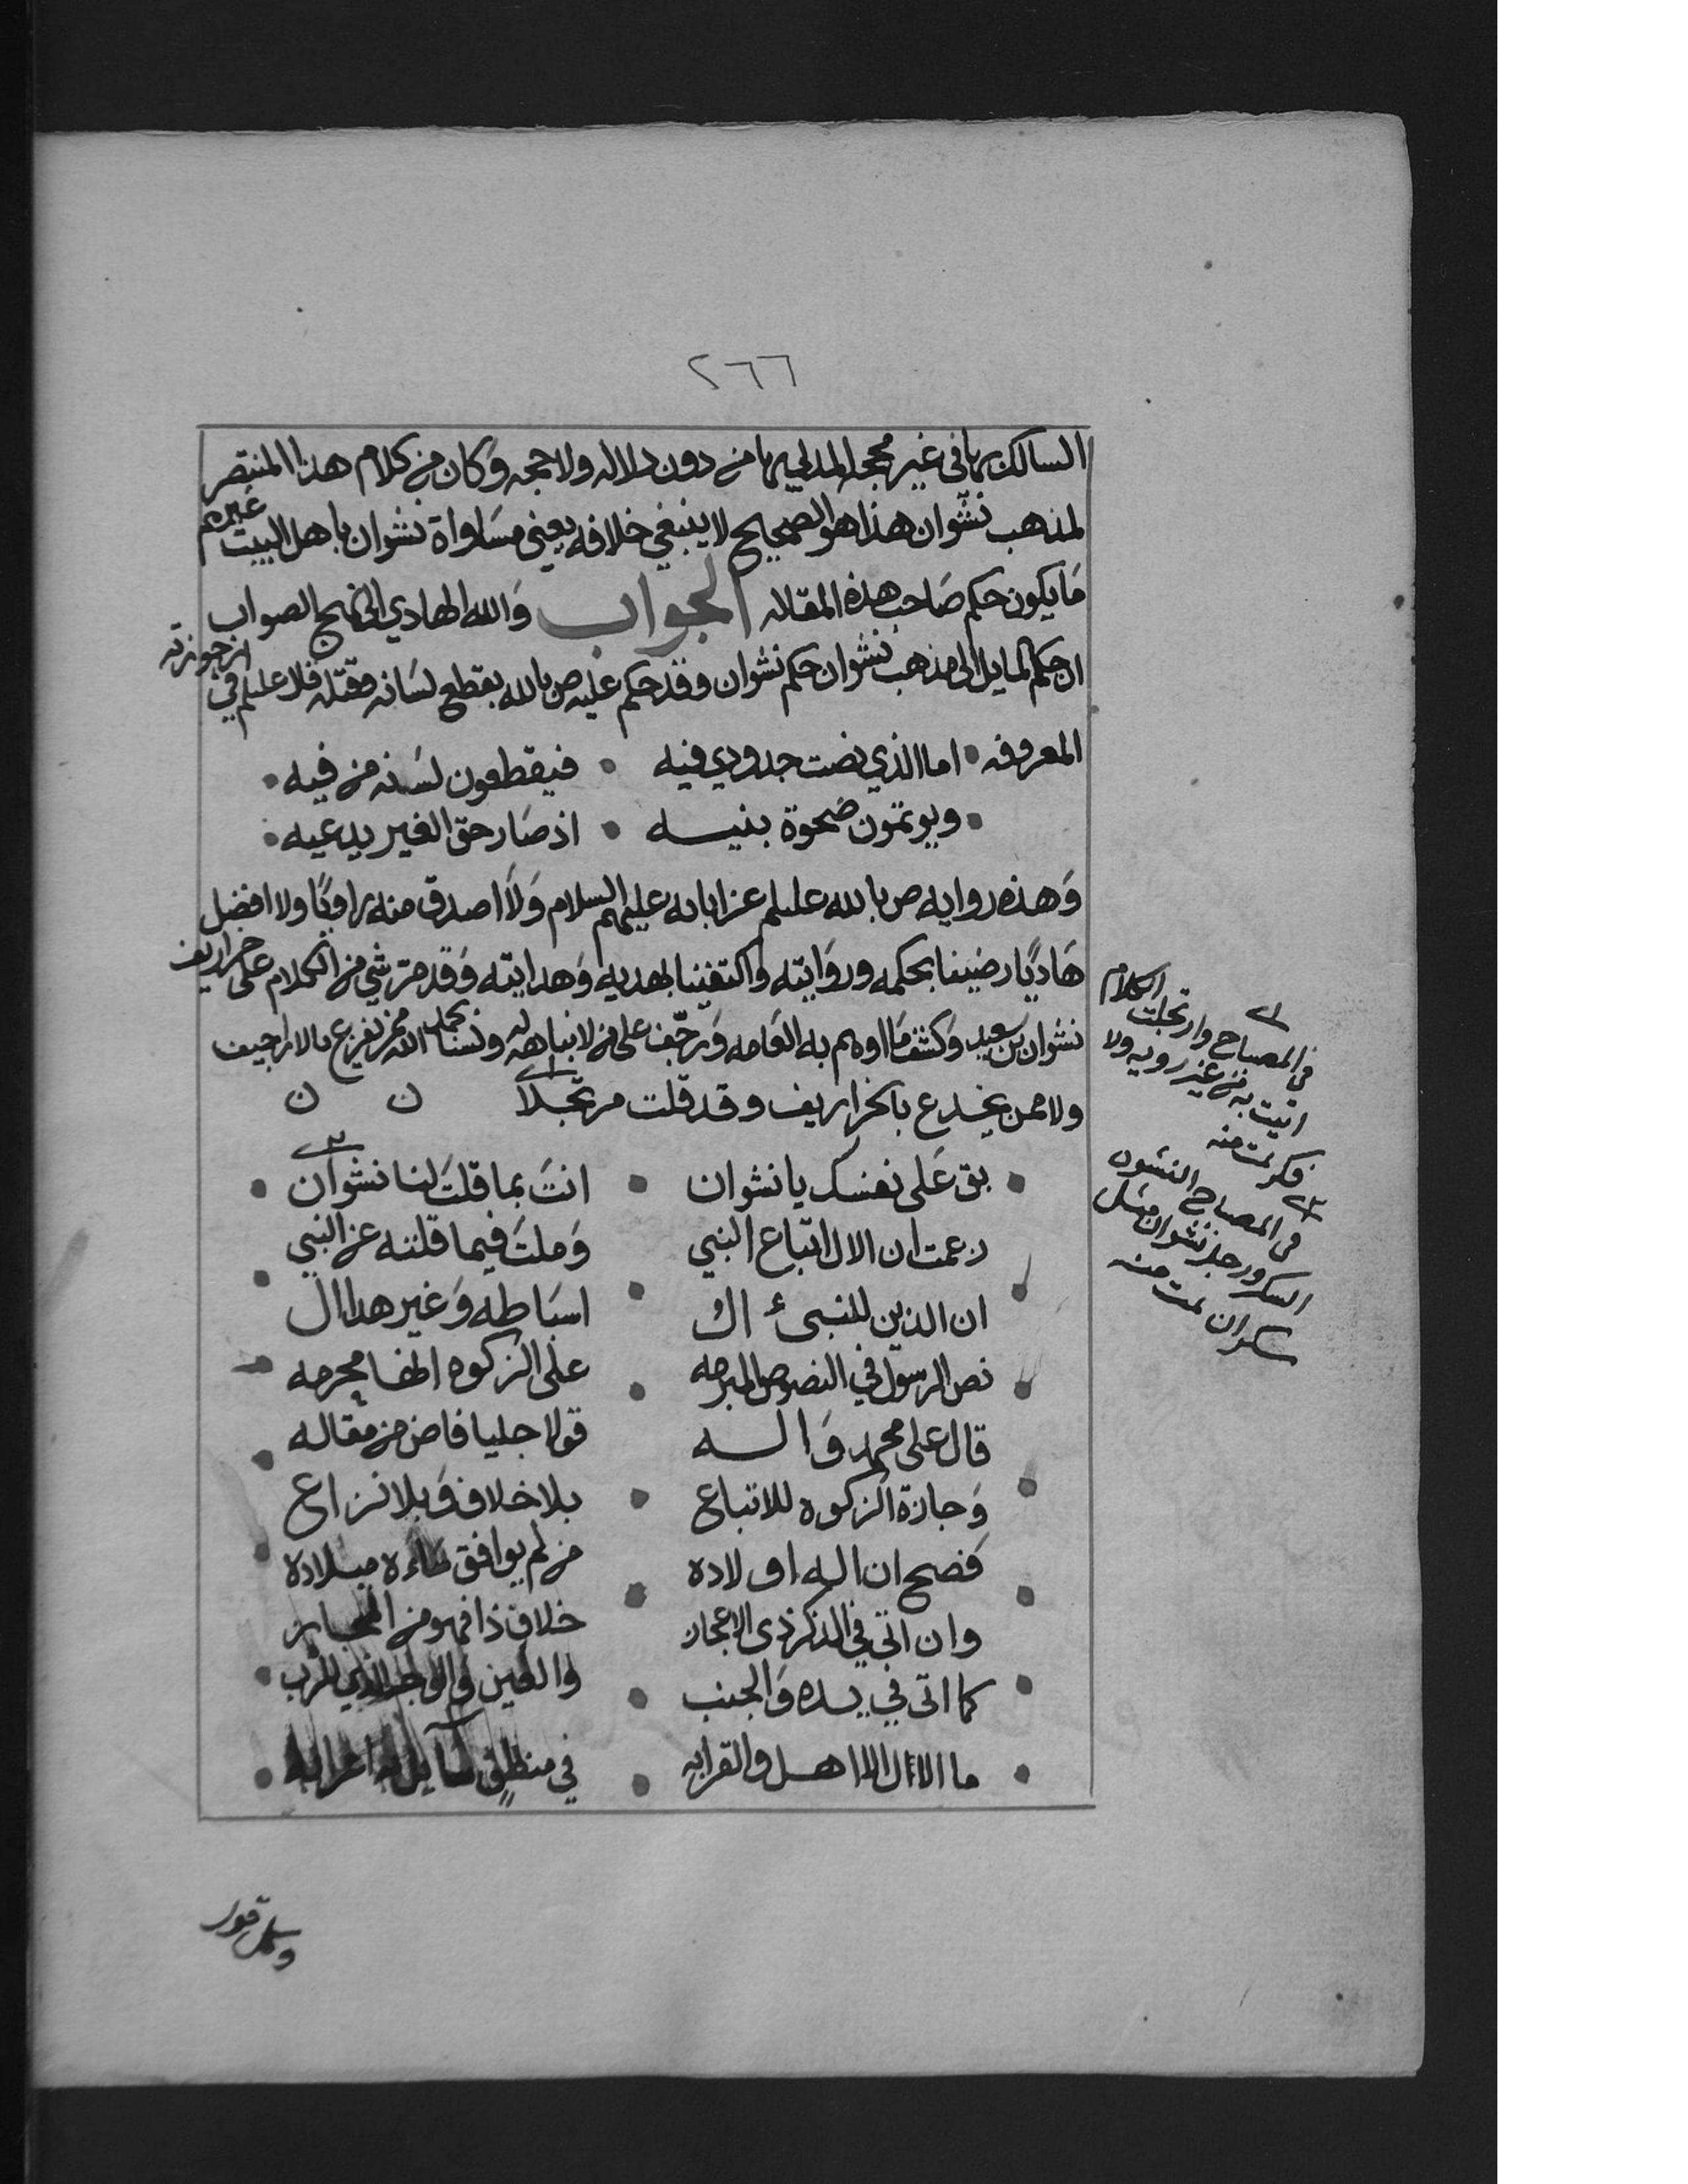 ٢٦٦
السالك بها في غير محجه المدلي بها من دون دلاله ولا حجه وكان من كلام هذا المنتصر
لمذهب نشوان هذا هو الصحيح لا ينبغي خلافه يعني مساواة نشوان باهل البيت غيرهم
ما يكون حكم صاحب هذه المقاله الجواب والله الهادي الى نهج الصواب
ان حكم المايل الى مذهب نشوان حكم نشوان وقد حكم عليه ص بالله بقطع لسانه وقتله فلا عليلم في ارجوزته
المعروفه • اما الذي نصت جدودي فيه • فيقطعون لسنه من فيه •
• ويوتمون ضحوة بنيه • اذ صار حق الغير يدعيه •
وهذه روايه ص بالله عليلم عن ابايه عليهم السلام ولا اصدق منه راويًا ولا افضل
هاديًا رضينا بحكمه وروايته واكتفينا بهديه وهدايته وقد مر شي من الكلام على خراريف
نشوان بن سعيد وكشف ما اوهم به العامه ورخف على من لا نباهه له ولسنا بحمد الله ممن يفزع بالاراجيف
ولا ممن يخدع بالخراريف وقد قلت مرتجلا ن ن
• بق على نفسك يا نشوان • انت بما قلت لنا نشوان •
زعمت ان الال اتباع النبي وملت فيما قلته عن النبي
• ان الذين للنبيء ال • اسباطه وغير هذا ال •
نص الرسول في النصوص المبرمه على الزكوه انها محرمه
قال على محمد واله قولا جليا فاض من مقاله
وجازة الزكوه للاتباع • بلا خلاف وبلا نزاع
فصح ان اله اولاده من لم يوافق ميلاده
وان اتى في الذكر ذي الاعجاز خلاف ذا فهو من المجاز
كما اتى في يده والجنب • والعين والوجه الذي للرب •
• ما الال الا الاهل والقرابه • في منطق
٢
في المصباح وارتجلت الكلام
اتيت به من غير رويه ولا
فكر تمت منه
٢
في المصباح النشوه
السكر ورجل نشوان مثل
سكران تمت منه